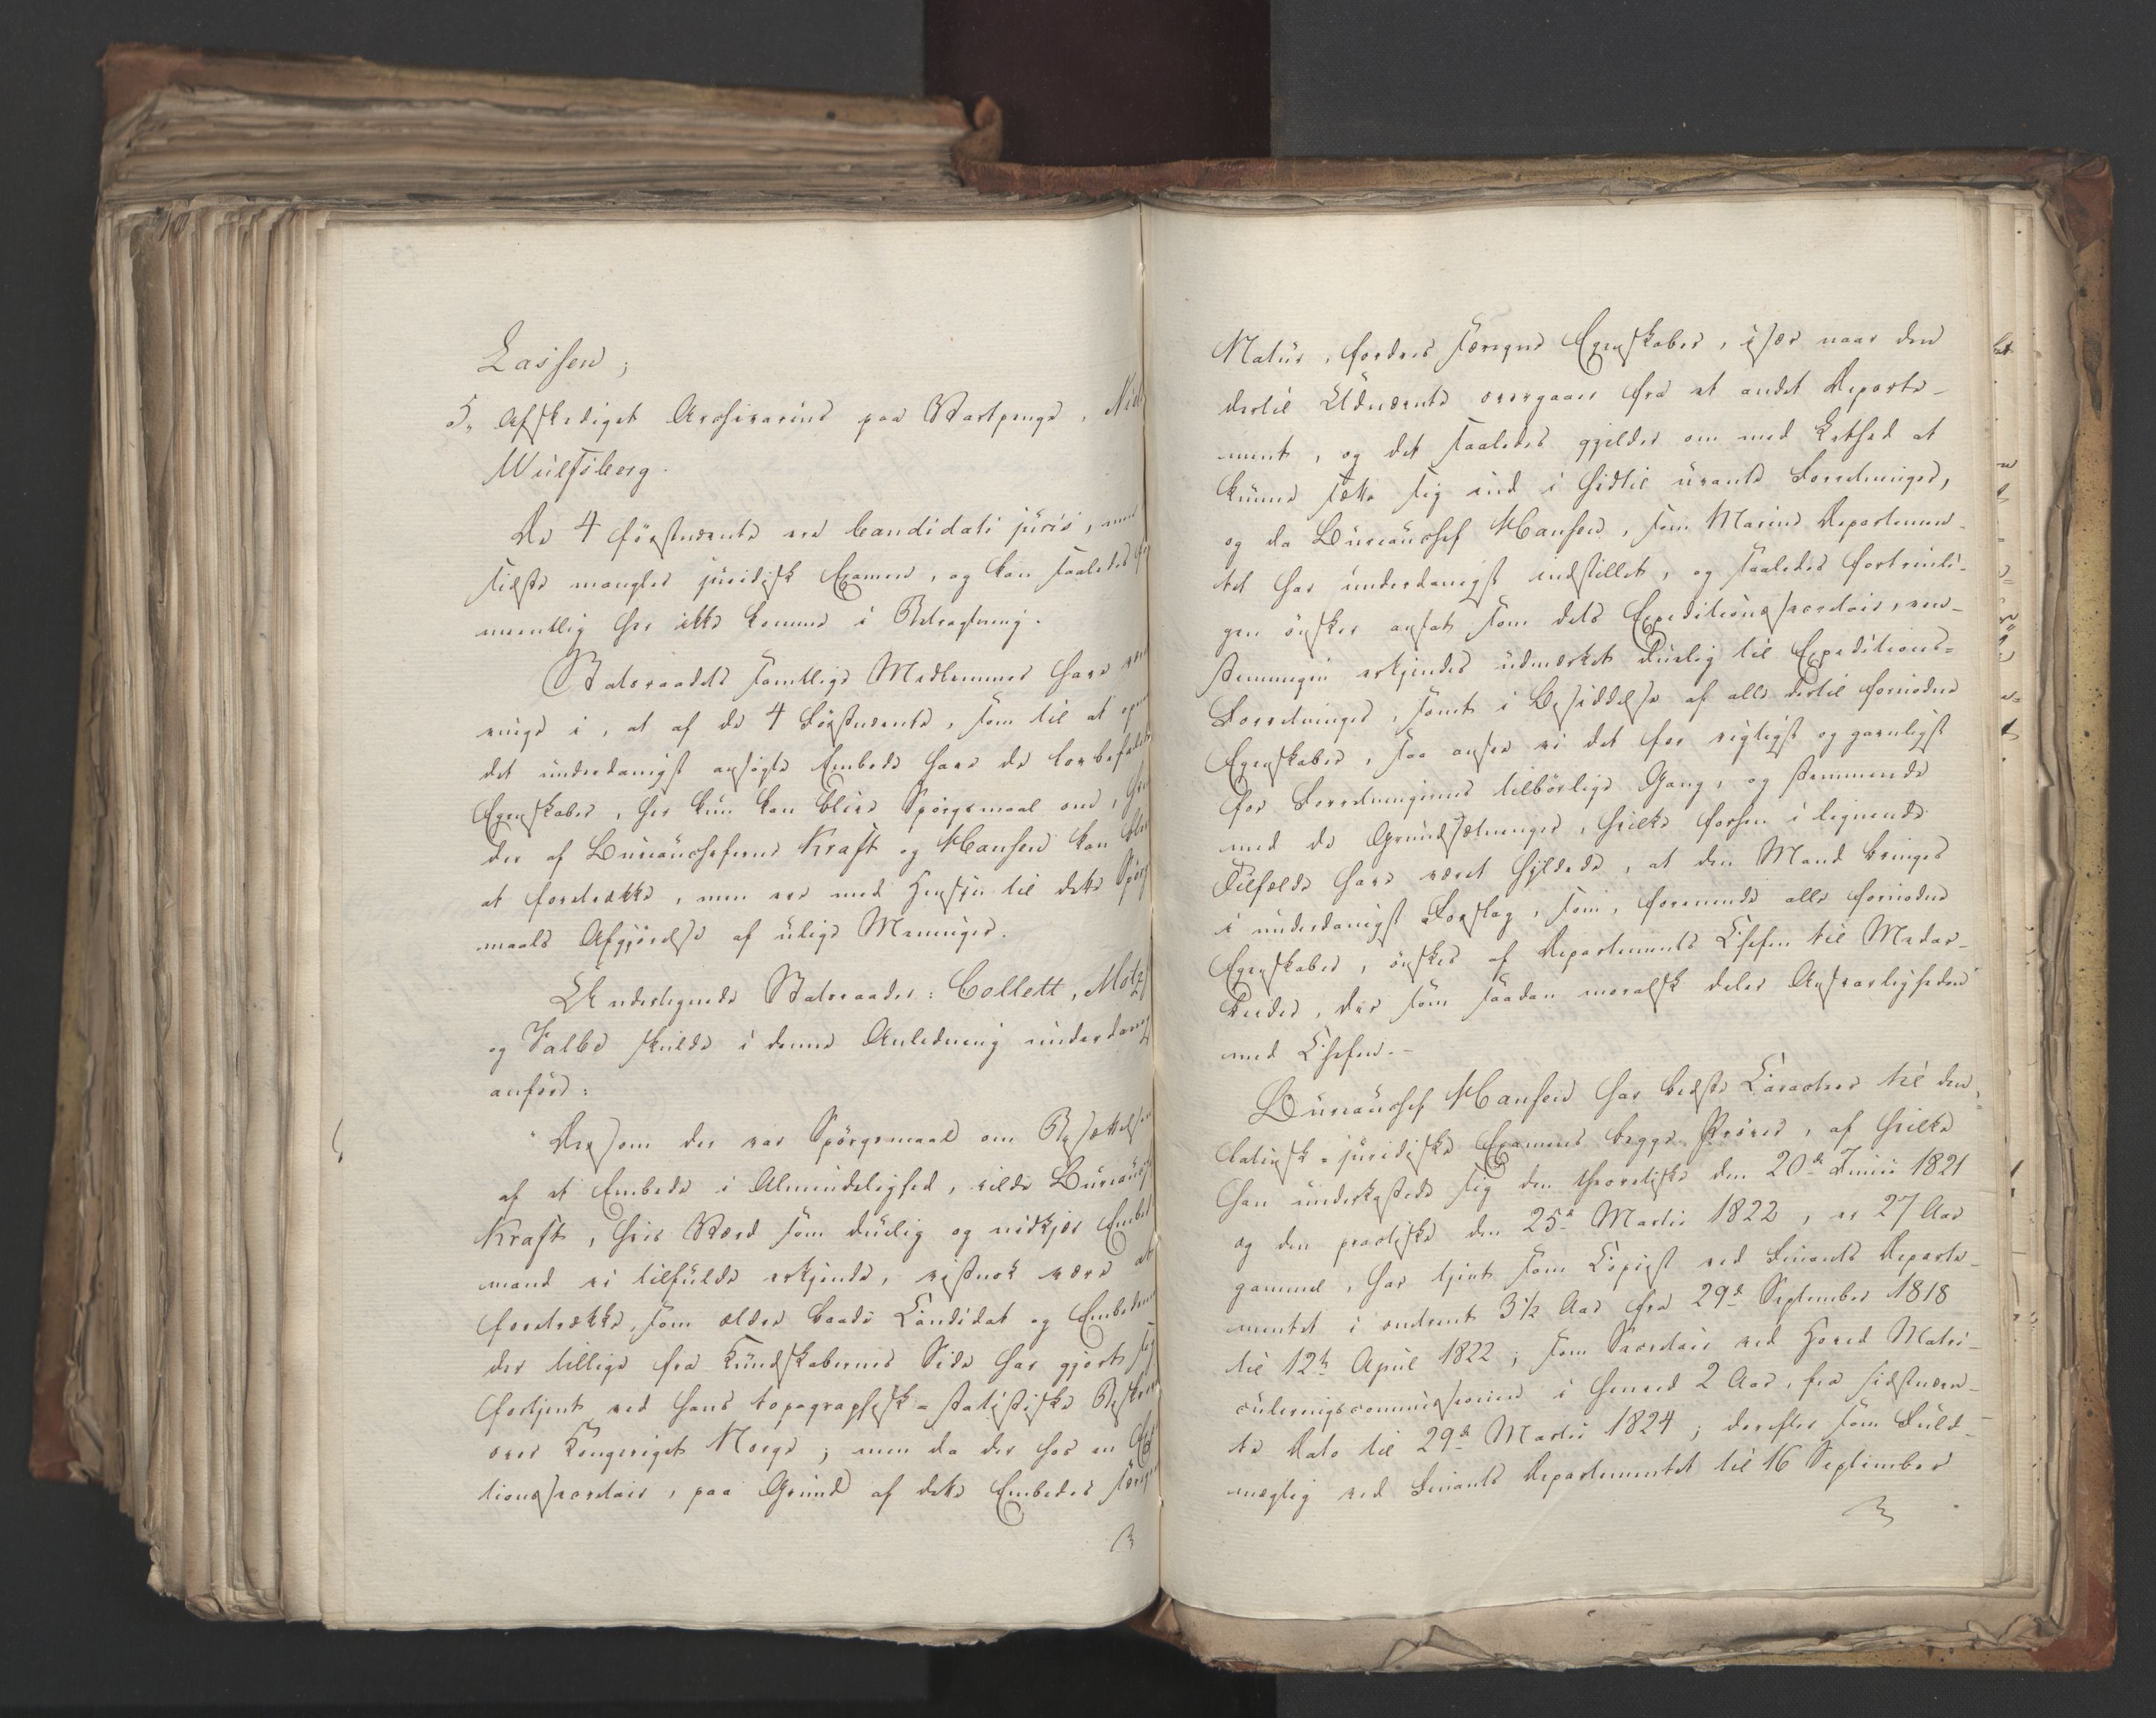 Lassen;
5, Afskediget Archivarius paa Vartpenge,
Wulfsberg.
De 4 førstnævnte ere Candidati juris, men
sidste mangler juridisk Examen, og kan saaledes
mentlig her ikke komme i Betragtning.
Statsraadets samtlige Medlemmer have
enige i, at af de 4 Førstnævnte, som til at
det underdanigst ansøgte Embede have de lovbefalede
Egenskaber, her kun kan blive Spørgsmaal om,
der af Bureaucheferne Kraft og Hansen kan
at foretrække, men ere med Hensyn til dette Spørgs
maals Afgjørelse af ulige Meninger.
Undertegnede Statsraader: Collett, Motzf
og Falbe skulde i denne Anledning underdanigst
anføre:
"Dersom der var Spørgsmaal om Besættelsen
af et Embede i Almindelighed, vilde Bureauchef
Kraft, hvis Værd som duelig og nidkjær Embeds
mand vi tilfulde erkjende, vistnok være at
foretrække, som ældre baade Candidat og Embedsmand
der tillige fra Kundskabernes Side har gjort sig
fortjent ved hans topographisk-statistiske Beskriv
over Kongeriget Norge; men da der hos en Exp
tionssecretair, paa Grund af dette Embedes særegne
Natur, fordres særegne Egenskaber, især naar den
dertil Udnævnte overgaaer fra et andet Departe-
ment, og det saaledes gjelder om med Lethed at
kunne sætte sig ind i hidtil uvante Forretninger,
og da Bureauchef Hansen, som Marine Departemen-
tet har underdanigst indstillet, og saaledes fortrinli-
gen ønsker ansat som dets Expeditionssecretair, een-
stemmigen erkjendes udmærket duelig til Expeditions-
Forretninger, samt i Besiddelse af alle dertil fornødne
Egenskaber, saa ansee vi det for rigtigst og gavnligst
for Forretningernes tilbørlige Gang, og stemmende
med de Grundsætninger, hvilke forhen i lignende
Tilfælde have været hyldede, at den Mand bringes
i underdanigst Forslag, som, forenende alle fornødne
Egenskaber, ønskes af Departements Chefen til Medar-
beider, der som saadan moralsk deler Ansvarligheden
med Chefen.-
Bureauchef Hansen har bedste Caracter til den
latinsk-juridiske Examens begge Prøver, af hvilke
han underkastede sig den theoretiske den 20de Junii 1821
og den practiske den 25de Martii 1822, er 27 Aar
gammel, har tjent som Copist ved Finants Departe-
mentet i omtrent 3½ Aar fra 29de September 1818
til 12te April 1822; som Secretair ved Hoved Matri-
culeringscommissionen i henved 2 Aar, fra sidstnævn-
te Dato til 29de Martii 1824; derefter som Fuld-
mægtig ved Finants Departementet til 16 September